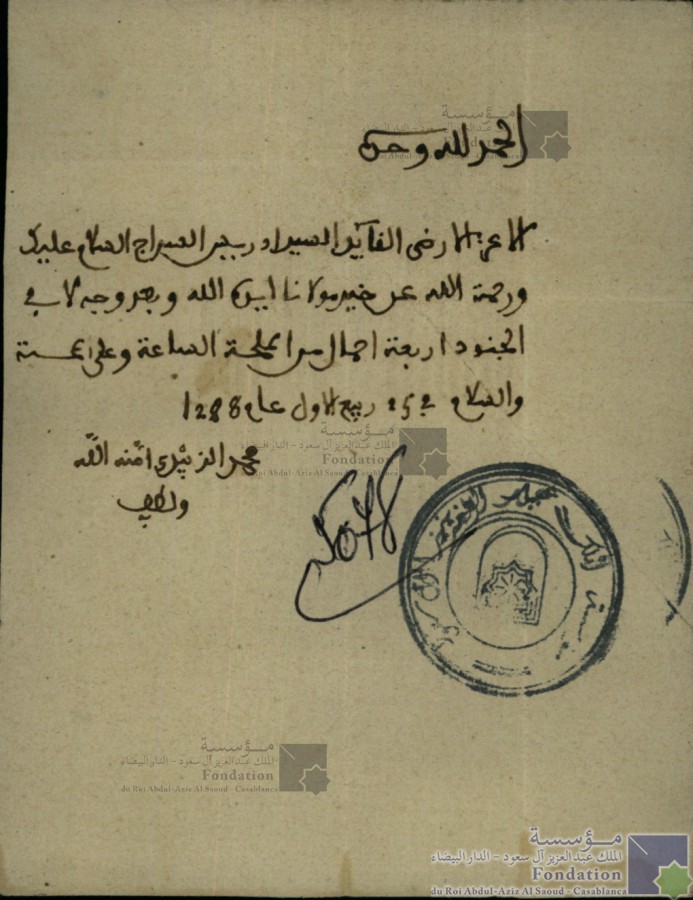 الحمد لله وحده
الاعز الارضى القائد السيد ادريس السراج السلام عليك
ورحمة الله عن خير مولانا ايده الله وبعد وجه لا في
الجنود اربعة احمال من الملحة الساعة وعلى المحبة
والسلام في 25 ربيع الاول عام 1288
محمد الزبدي امنه الله
مؤسسة
الملك عبد العزيز آل سعود - الدار البيضاء
Fondation
du Roi Abdul-Aziz Al Saoud - Casablanca
مؤسسة الملك عبد العزيز آل سعود
مؤسسة
الملك عبد العزيز آل سعود - الدار البيضاء
Fondation
du Roi Abdul-Aziz Al Saoud - Casablanca
مؤسسة
الملك عبد العزيز آل سعود - الدار البيضاء
Fondation
du Roi Abdul-Aziz Al Saoud - Casablanca